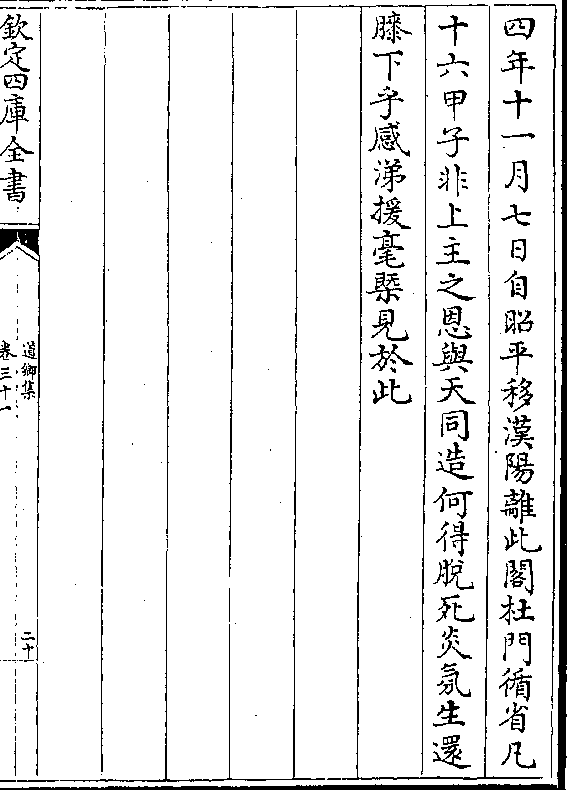 四年十一月七日自昭平移漢陽離此閣杜門循省凡
十六甲子非上主之恩與天同造何得脫死炎氛生還
膝下乎感涕援毫槩見於此
欽定四庫全書
道鄉集
卷三十一
二十